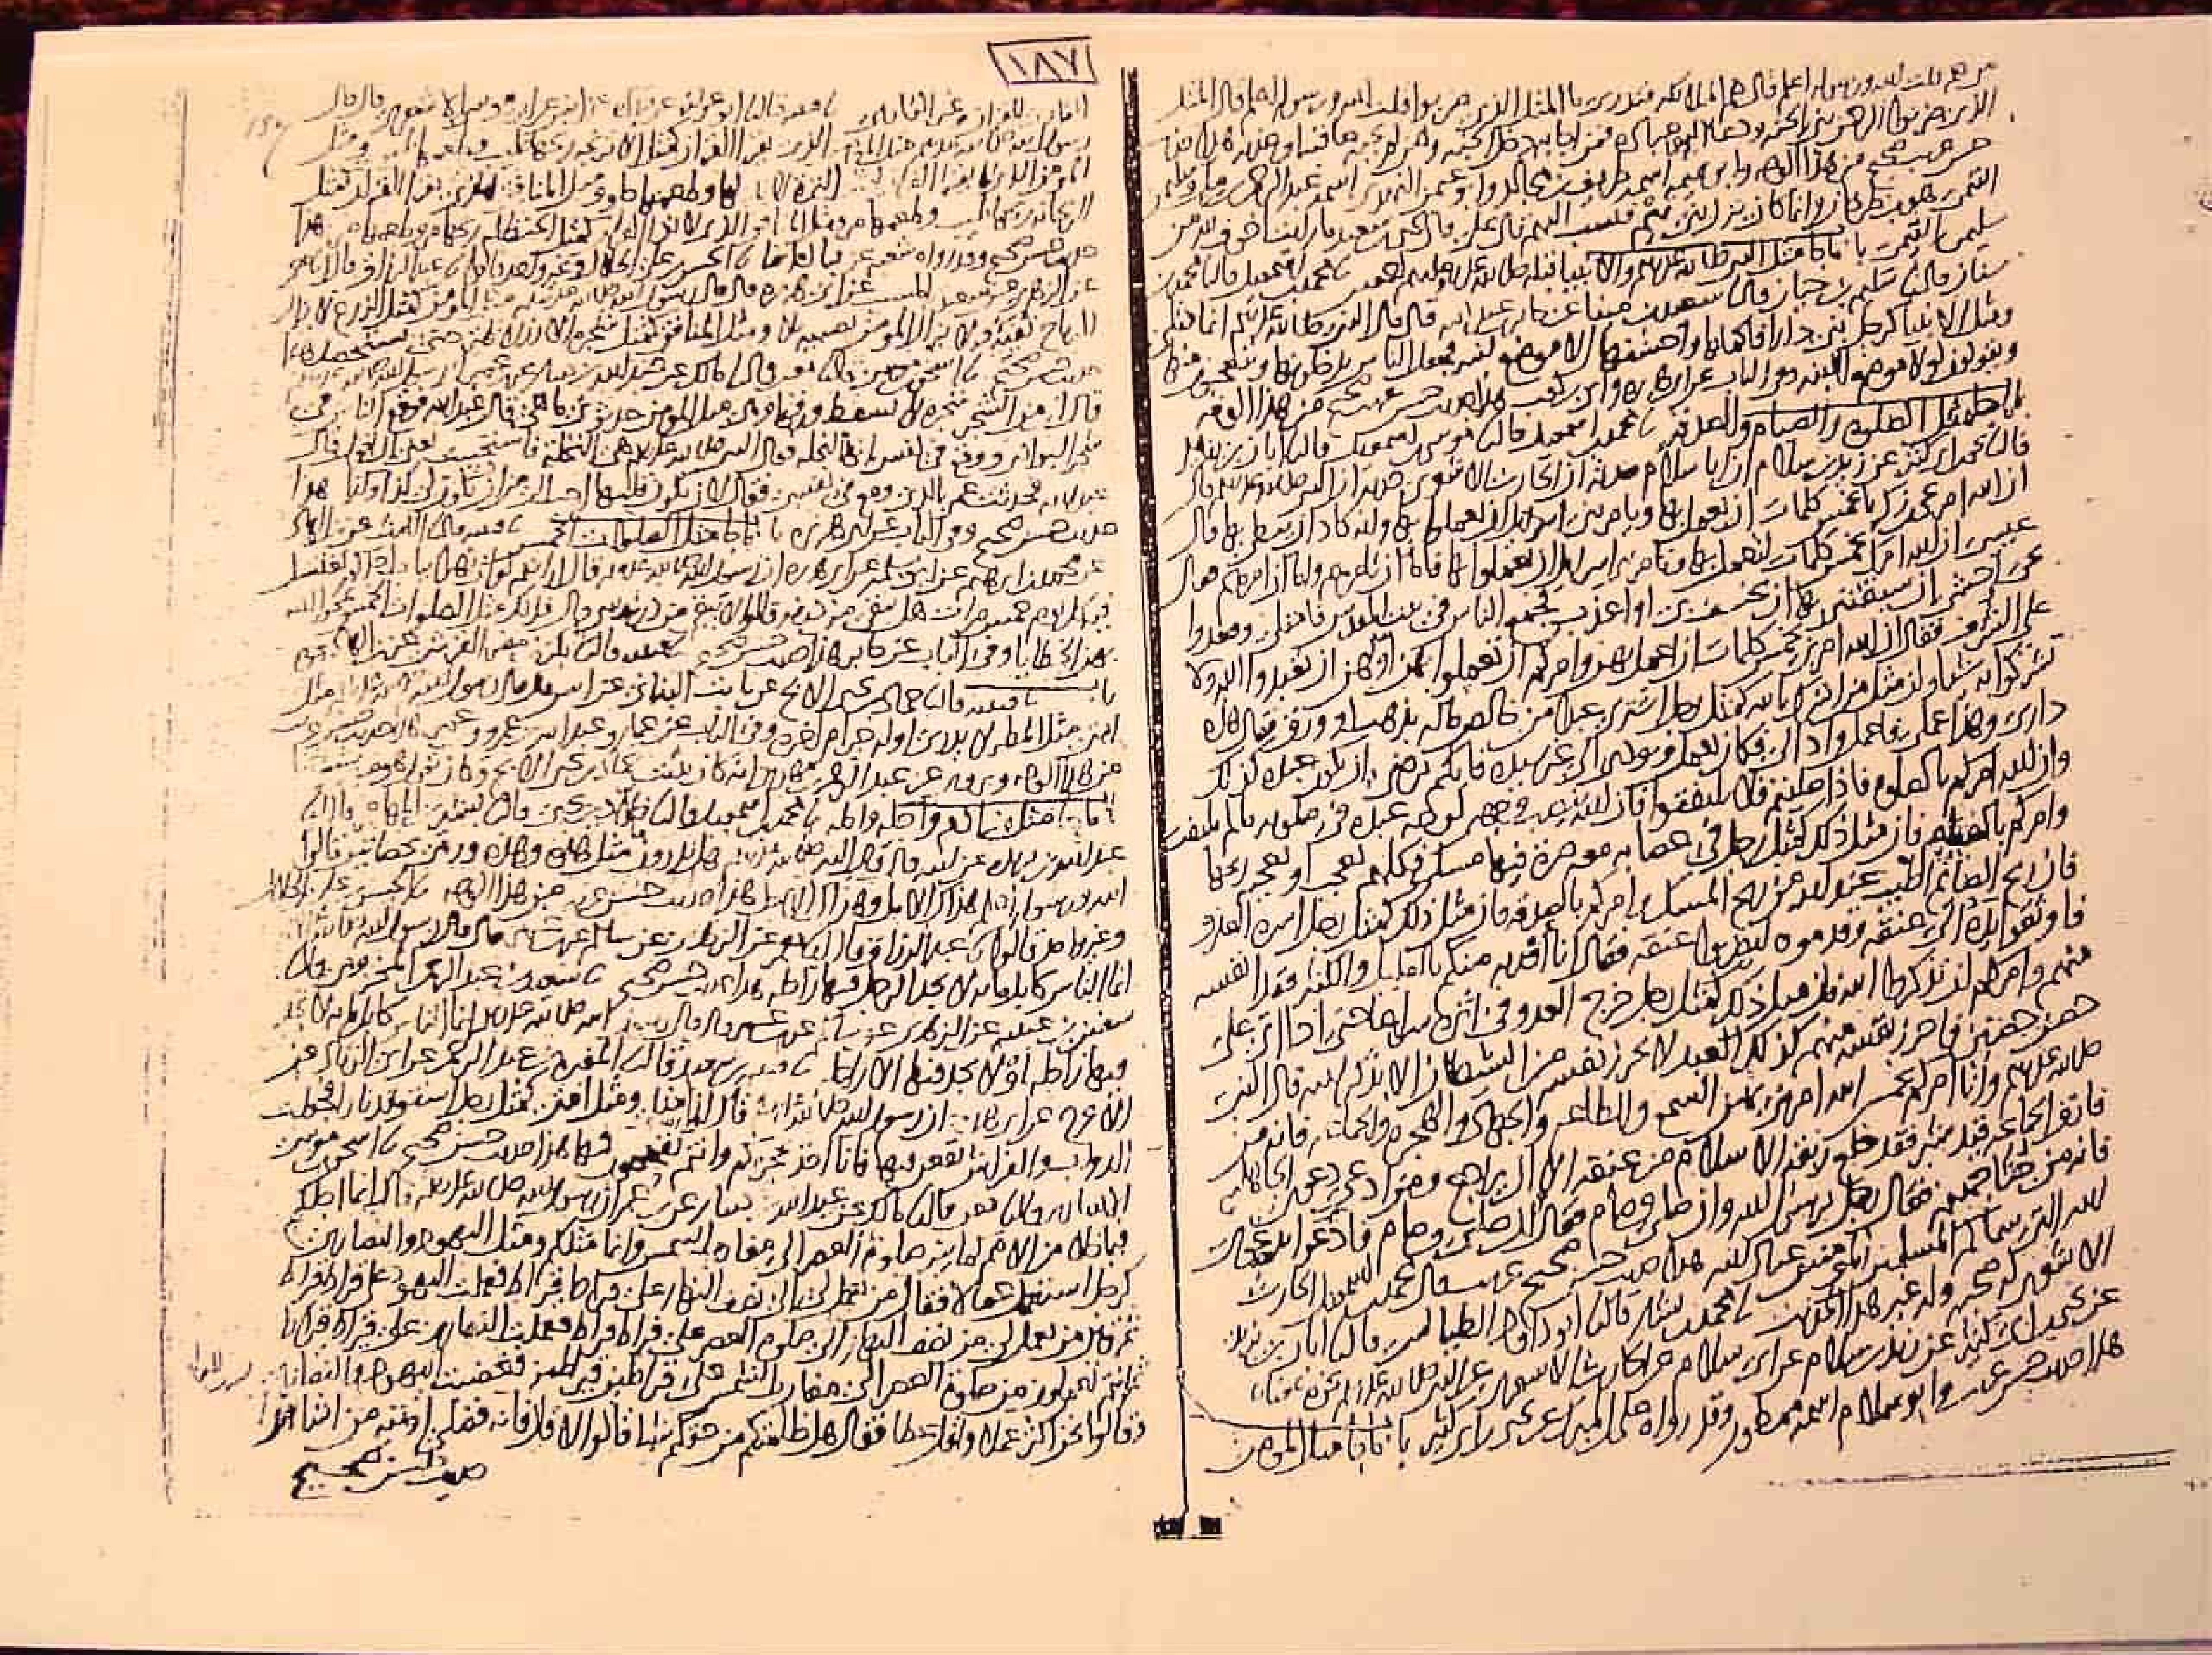 ١٨٧
من هم قلت الله ورسوله اعلم قال هم الملائكة فتدري ما المثل الذي ضربوا قلت الله ورسوله اعلم قال المثل
الذي ضربوا الرحمن بنى الجنة ودعا اليها عباده فمن اجابه دخل الجنة ومن لم يجبه عاقبه او عذبه هذا حديث
حسن غريب صحيح من هذا الوجه وابو تميمة اسمه طريف بن مجالد وابو عثمن النهدي اسمه عبد الرحمن بن مل وسليمن
التيمي هو بن طرخان وانما كان ينزل بني تيم فنسب اليهم قال علي قال يحيى بن سعيد ما رايت اخوف لله من
سليمن التيمي باب ما جا مثل النبي صلى الله عليه وسلم والانبيا قبله محمد بن اسمعيل قال محمد بن
سنان قال سليم بن حيان قال سعيد بن مينا عن جابر بن عبد الله قال قال النبي صلى الله عليه وسلم انما مثلي
ومثل الانبيا كرجل بنى دارا فاكملها واحسنها الا موضع لبنة فجعل الناس يدخلونها ويتعجبون منها
ويقولون لولا موضع اللبنة وفي الباب عن ابي هريرة وابي بن كعب هذا حديث حسن غريب صحيح من هذا الوجه
باب ما جا مثل الصلوة والصيام والصدقة محمد بن اسمعيل قال موسى بن اسمعيل قال ابان بن يزيد
قال يحيى بن ابي كثير عن زيد بن سلام ان ابا سلام حدثه ان الحارث الاشعري حدثه ان النبي صلى الله عليه وسلم قال
ان الله امر يحيى بن زكريا بخمس كلمات ان يعمل بها ويامر بني اسرايل ان يعملوا بها وانه كاد ان يبطي بها قال
عيسى ان الله امرك بخمس كلمات لتعمل بها وتامر بني اسرايل ان يعملوا بها فاما ان تامرهم واما ان امرهم فقال
يحيى اخشى ان سبقتني بها ان يخسف بي او اعذب فجمع الناس في بيت المقدس فامتلى وقعدوا
على الشرف فقال ان الله امرني بخمس كلمات ان اعمل بهن وامركم ان تعملوا بهن اولهن ان تعبدوا الله ولا
تشركوا به شيئا وان مثل من اشرك بالله كمثل رجل اشترى عبدا من خالص ماله بذهب او ورق فقال هذه
داري وهذا عملي فاعمل واد الي فكان يعمل ويودي الى غير سيده فايكم يرضى ان يكون عبده كذلك
وان الله امركم بالصلوة فاذا صليتم فلا تلتفتوا فان الله ينصب وجهه لوجه عبده في صلوته ما لم يلتفت
وامركم بالصيام فان مثل ذلك كمثل رجل في عصابة معه صرة فيها مسك فكلهم يعجب او يعجبه ريحها
فان ريح الصائم اطيب عند الله من ريح المسك وامركم بالصدقة فان مثل ذلك كمثل رجل اسره العدو
فاوثقوا يده الى عنقه وقدموه ليضربوا عنقه فقال انا افديه منكم بالقليل والكثير ففدا نفسه
منهم وامركم ان تذكروا الله فان مثل ذلك كمثل رجل خرج العدو في اثره سراعا حتى اذا اتى على
حصن حصين فاحرز نفسه منهم كذلك العبد لا يحرز نفسه من الشيطان الا بذكر الله قال النبي
صلى الله عليه وسلم وانا امركم بخمس الله امرني بهن السمع والطاعة والجهاد والهجرة والجماعة فانه من
فارق الجماعة قيد شبر فقد خلع ربقة الاسلام من عنقه الا ان يراجع ومن ادعى دعوى الجاهلية
فانه من جثا جهنم فقال رجل يرسول الله وان صلى وصام فقال وان صلى وصام فادعوا بدعوى
الله الذي سماكم المسلمين المومنين عباد الله هذا حديث حسن صحيح غريب قال محمد بن اسمعيل الحارث
الاشعري له صحبة وله غير هذا الحديث محمد بن بشار قال ابو داود الطيالسي قال ابان بن يزيد
عن يحيى بن ابي كثير عن زيد بن سلام عن ابي سلام عن الحارث الاشعري عن النبي صلى الله عليه وسلم نحوه بمعناه
هذا حديث حسن غريب وابو سلام اسمه ممطور وقد رواه علي بن المبارك عن يحيى بن ابي كثير باب ما جا مثل المومن
القاري للقران وغير القاري قتيبة قال ابو عوانة عن قتادة عن انس عن ابي موسى الاشعري قال قال
رسول الله صلى الله عليه وسلم مثل المومن الذي يقرا القران كمثل الاترجة ريحها طيب وطعمها طيب ومثل
المومن الذي لا يقرا القران كمثل التمرة لا ريح لها وطعمها حلو ومثل المنافق الذي يقرا القران كمثل
الريحانة ريحها طيب وطعمها مر ومثل المنافق الذي لا يقرا القران كمثل الحنظلة ريحها مر وطعمها مر هذا
حديث حسن صحيح وقد رواه شعبة عن قتادة ايضا الحسن بن علي الخلال وغير واحد قالوا عبد الرزاق قال معمر
عن الزهري عن سعيد بن المسيب عن ابي هريرة قال قال رسول الله صلى الله عليه وسلم مثل المومن كمثل الزرع لا تزال
الرياح تفيئه ولا يزال المومن يصيبه بلا ومثل المنافق كمثل شجرة الارز لا تهتز حتى تستحصد هذا
حديث حسن صحيح اسحق بن موسى قال معن قال مالك عن عبد الله بن دينار عن بن عمر ان رسول الله صلى الله عليه وسلم
قال ان من الشجر شجرة لا يسقط ورقها وهي مثل المومن حدثوني ما هي قال عبد الله فوقع الناس في
شجر البوادي ووقع في نفسي انها النخلة فقال النبي صلى الله عليه وسلم هي النخلة فاستحييت يعني ان اقول قال
عبد الله فحدثت عمر بالذي وقع في نفسي فقال لان تكون قلتها احب الي من ان يكون لي كذا وكذا هذا
حديث حسن صحيح وفي الباب عن ابي هريرة باب ما جا مثل الصلوات الخمس قتيبة قال الليث عن بن الهاد
عن محمد بن ابرهيم عن ابي سلمة عن ابي هريرة ان رسول الله صلى الله عليه وسلم قال ارايتم لو ان نهرا بباب احدكم يغتسل
فيه كل يوم خمس مرات هل يبقى من درنه قالوا لا يبقى من درنه شي قال فذلك مثل الصلوات الخمس يمحو الله
بهن الخطايا وفي الباب عن جابر هذا حديث حسن صحيح قتيبة قال بكر بن مضر القرشي عن بن الهاد نحوه
باب قتيبة قال حماد بن يحيى الابح عن ثابت البناني عن انس قال قال رسول الله صلى الله عليه وسلم مثل
امتي مثل المطر لا يدرى اوله خير ام اخره وفي الباب عن عمار وعبد الله بن عمرو وبن عمر هذا حديث حسن غريب
من هذا الوجه وروي عن عبد الرحمن بن مهدي انه كان يثبت حماد بن يحيى الابح وكان يقول هو من شيوخنا
باب ما جا مثل بن ادم واجله وامله محمد بن اسمعيل قال خلاد بن يحيى قال بشير بن المهاجر قال
عبد الله بن بريدة عن ابيه قال قال النبي صلى الله عليه وسلم هل تدرون مثل هذه وهذه ورمى بحصاتين قالوا
الله ورسوله اعلم قال هذاك الامل وهذاك الاجل هذا حديث حسن غريب من هذا الوجه الحسن بن علي الخلال
وغير واحد قالوا عبد الرزاق قال معمر عن الزهري عن سالم عن بن عمر قال قال رسول الله صلى الله عليه وسلم
انما الناس كابل مائة لا يجد الرجل فيها راحلة هذا حديث حسن صحيح سعيد بن عبد الرحمن المخزومي قال
سفين بن عيينة عن الزهري عن سالم عن بن عمر قال قال رسول الله صلى الله عليه وسلم انما الناس كابل مائة لا تجد
فيها راحلة او لا تجد فيها الا راحلة قتيبة بن سعيد قال المغيرة بن عبد الرحمن عن ابي الزناد عن
الاعرج عن ابي هريرة ان رسول الله صلى الله عليه وسلم قال انما مثلي ومثل امتي كمثل رجل استوقد نارا فجعلت
الدواب والفراش يقعن فيها فانا اخذ بحجزكم وانتم تقحمون فيها هذا حديث حسن صحيح اسحق بن موسى
الانصاري قال معن قال مالك عن عبد الله بن دينار عن بن عمر ان رسول الله صلى الله عليه وسلم قال انما اجلكم
فيما خلا من الامم كما بين صلوة العصر الى مغارب الشمس وانما مثلكم ومثل اليهود والنصارى
كرجل استعمل عمالا فقال من يعمل لي الى نصف النهار على قيراط قيراط فعملت اليهود على قيراط قيراط
ثم قال من يعمل لي من نصف النهار الى صلوة العصر على قيراط قيراط فعملت النصارى على قيراط قيراط
ثم انتم تعملون من صلوة العصر الى مغارب الشمس على قيراطين قيراطين فغضبت اليهود والنصارى
وقالوا نحن اكثر عملا واقل عطا فقال هل ظلمتكم من حقكم شيئا قالوا لا قال فانه فضلي اوتيه من اشا هذا
حديث حسن صحيح